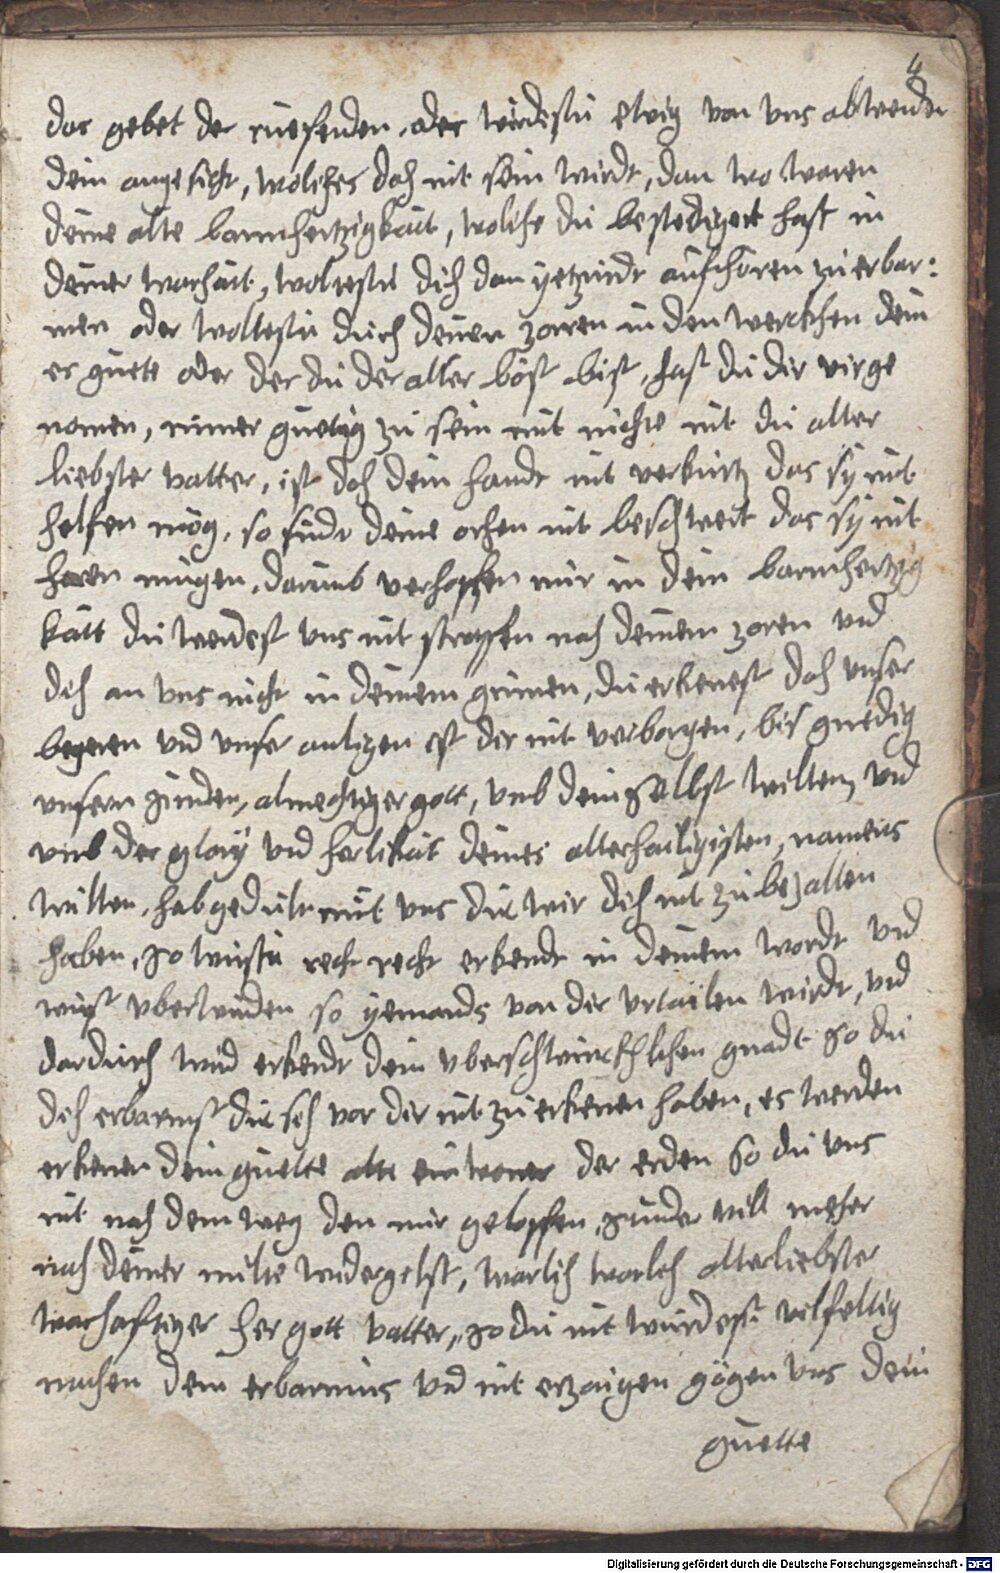 4
das gebet der ruefenden, oder wirdestu ewig von vns abwenden
dein angesicht, wölches doch nit sein wirdt, dan wo waren
deine alte barmhertzigkäit, wölche du bestediget hast in
deiner warhait, woltestu dich dan yetzundt aufhören zu erbar:
men oder woltestu durch deinen zoren in den werckhen dein
er guete oder der du der aller böst bist, hast du dir virge
nomen, nimer guetig zu sein mit nichte nit du aller
liebster vatter, ist doch dein handt nit verkurtz das sy nit
helfen mög, so sindt deine orhen nit beschwert das sy nit
horen mugen, darumb verhoffen mir in dein barmhertzig
kätt du werdest vns nit straffen nach deinem zoren vnd
dich an vns nicht in deinem grimen, du erkenest doch vnser
begeren vnd vnser anligen ist dir nit verborgen, bis gnedig
vnsern sinden, almechtiger gott, vmb dein selbst willen, vnd
vmb der glory vnd herlikät deines allerhailigisten, namens
willen, hab gedult mit vns die wir dich nit zu bezallen
haben, so wirstu recht recht erkendt in deinem wordt vnd
wirst vberwinden so yemands von dir vrtailen wirdt, vnd
dardurch wird erkendt dein vberschwincklichen gnadt so du
dich erbarmst die sich vor dir nit zu erkenen haben, es werden
erkenen dein guette alle einwoner der erden so du vns
nit nach dem weg den mir geloffen, sunder vill meher
nach deiner milte widergelst, warlich warlich allerliebster
warhaftiger her gott vatter, so du nit wurdest vilfeltig
machen dein erbarmus vnd nit erzaigen gögen vns dein
guette
Digitalisierung gefördert durch die Deutsche Forschungsgemeinschaft - DFG